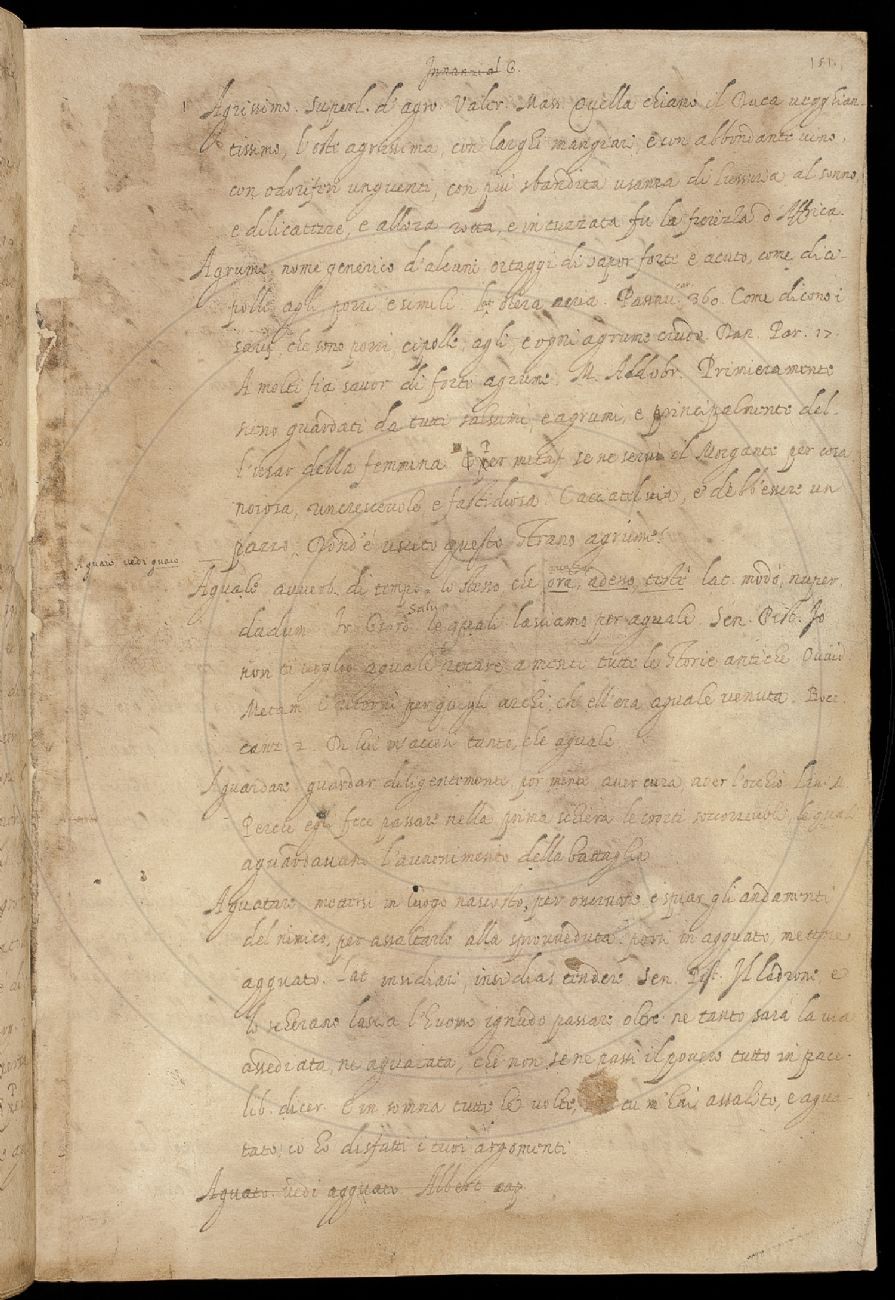 Innanzi al G.
151
Agrissimo. Superl. d'agro. Valer. Mass. Quella chiano il Duca vegghian-
tissimo, l'oste agrissima, con larghi mangiari, e con abbondante vino,
con odoriferi unguenti, con più sbandita usanza di lussuria al sonno,
e dilicatezze, e allora rotta, e intuzzata fu la fierezza d'Affrica.
Agrume, nome generico d'alcuni ortaggi di sapor forte e acuto, come di ci-
polle agli porri e simili. Pannu. car. 360. Come dicono i
savi, che sono porri, cipolle, agli, e ogni agrume crudo. Dan. Par. 17.
A molti fia savor di forte agrume. M. Aldobr. Primieramente
sieno guardati da tutti salsumi, e agrumi, e principalmente del-
l'usar della femmina. E per metaf. se ne servì il Morgante per cosa
noiosa, rincrescevole, e fastidiosa. Cacciatel via, e' debb'essere un
pazzo, Dond'è uscito questo strano agrume?
Aguaio vedi guaio
Aguale, avverb. di tempo, lo stesso, che ora, adesso, testè lat. modo, nuper,
dudum. Giord. Salv. le quali lasciamo per aguale. Sen. Pist. Io
non ti voglio aguale recare a mente tutte le storie antiche Ovid.
Metam. E ritornò per quegli archi, ch'ell'era aguale venuta. Bocc.
canz. 2. Di lui m'accesi tanto, che aguale
Aguardare guardar diligentemente, por mente, aver cura, aver l'occhio. Liv. M.
Perchè egli fece passare nella prima schiera le coorti soccorrevoli, le quali
aguardavano l'avvenimento della battaglia
Aguatare mettersi in luogo nascosto, per osservare, e spiar gli andamenti
del nimico, per assaltarlo alla sprovveduta. porsi in agguato, mettere
agguato. Lat. insidiari, insidias tendere. Sen. Pist. Il ladrone, e
lo scherano lascia l'huomo ignudo passare oltre ne tanto sarà la via
assediata, nè aguatata, che non se ne passi il povero tutto in pace.
lib. dicer. E in somma tutte le volte, tu m'hai assalito, e agua-
tato, io ho disfatti i tuoi argomenti
Aguato. vedi agguato. Albert. cap.